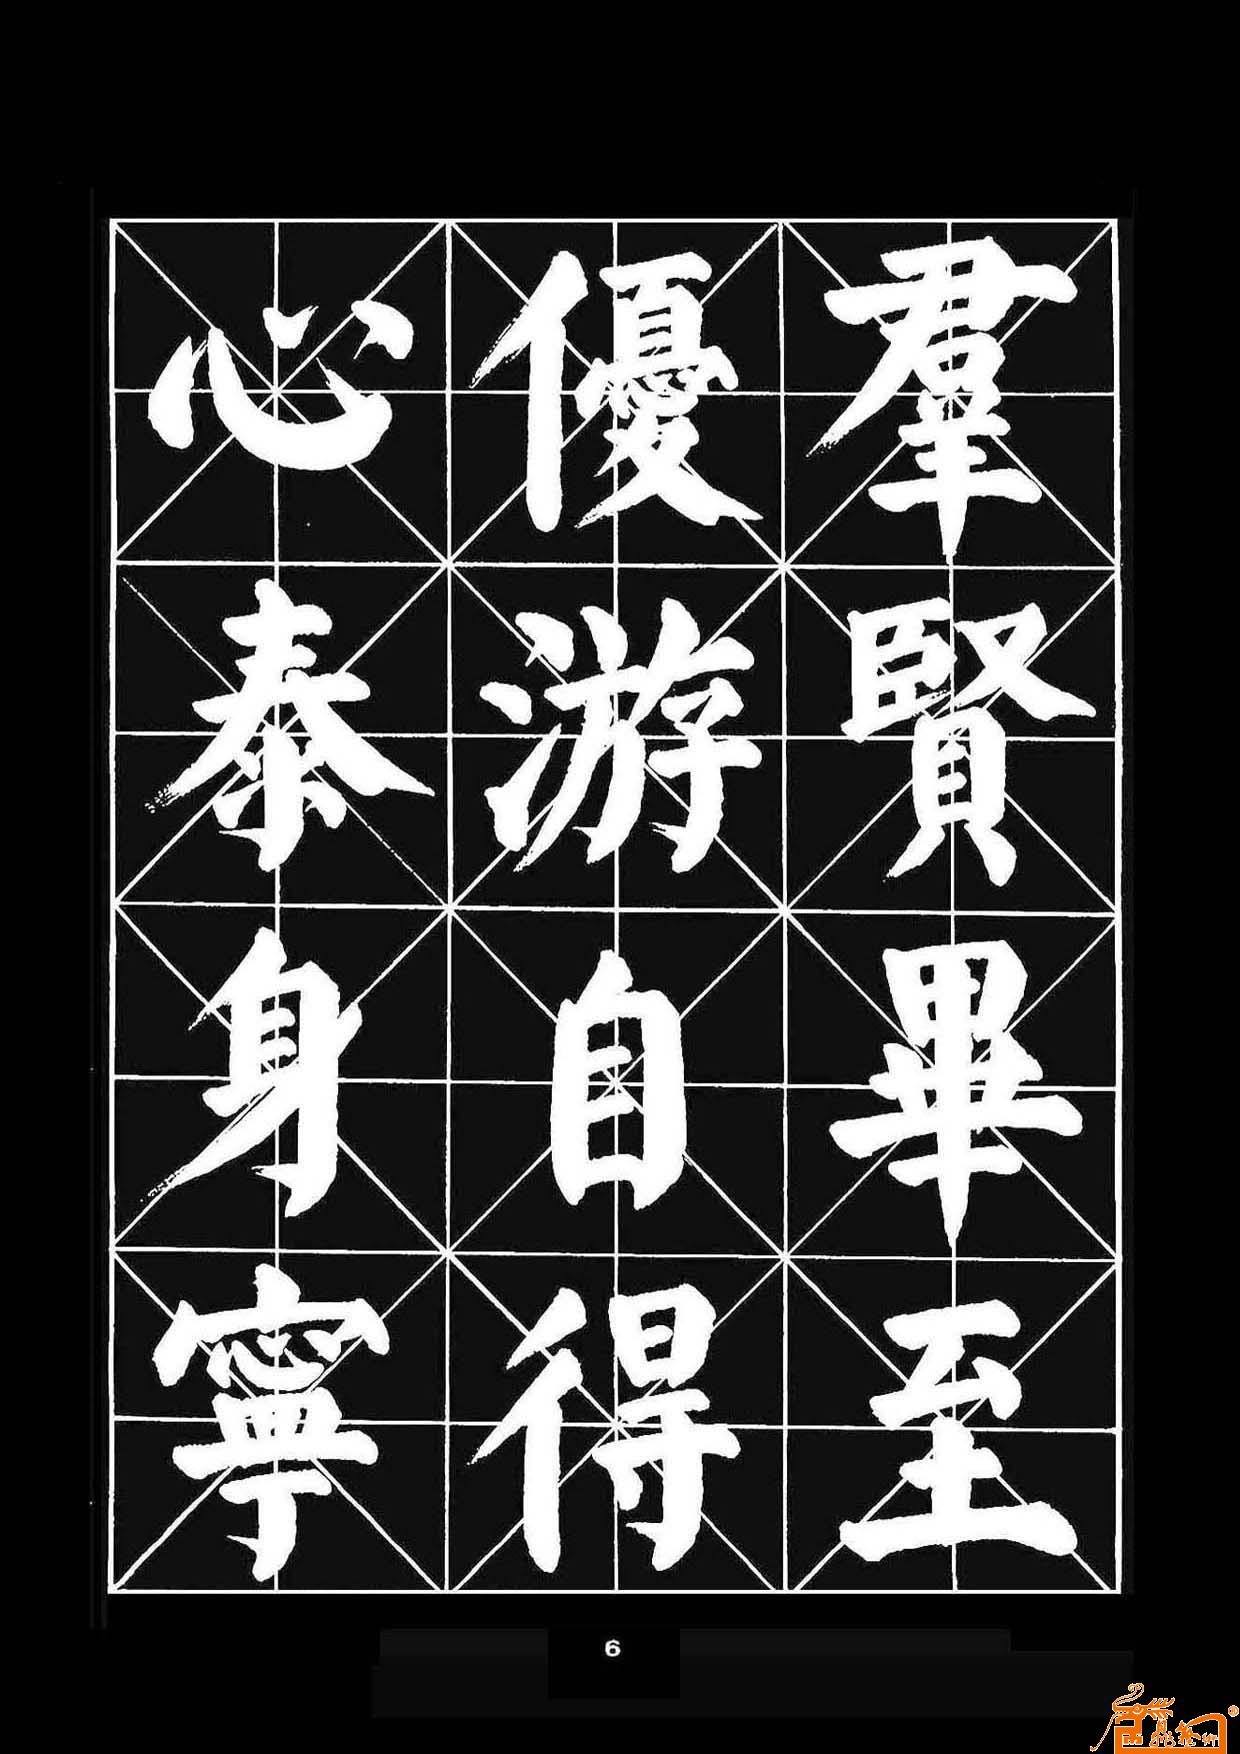 羣賢畢至
優游自得
心泰身寧
6